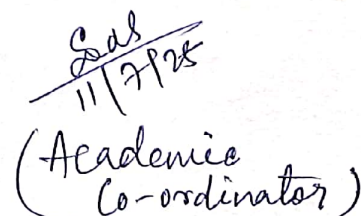 11/7/25
(Academic
Co-ordinator)